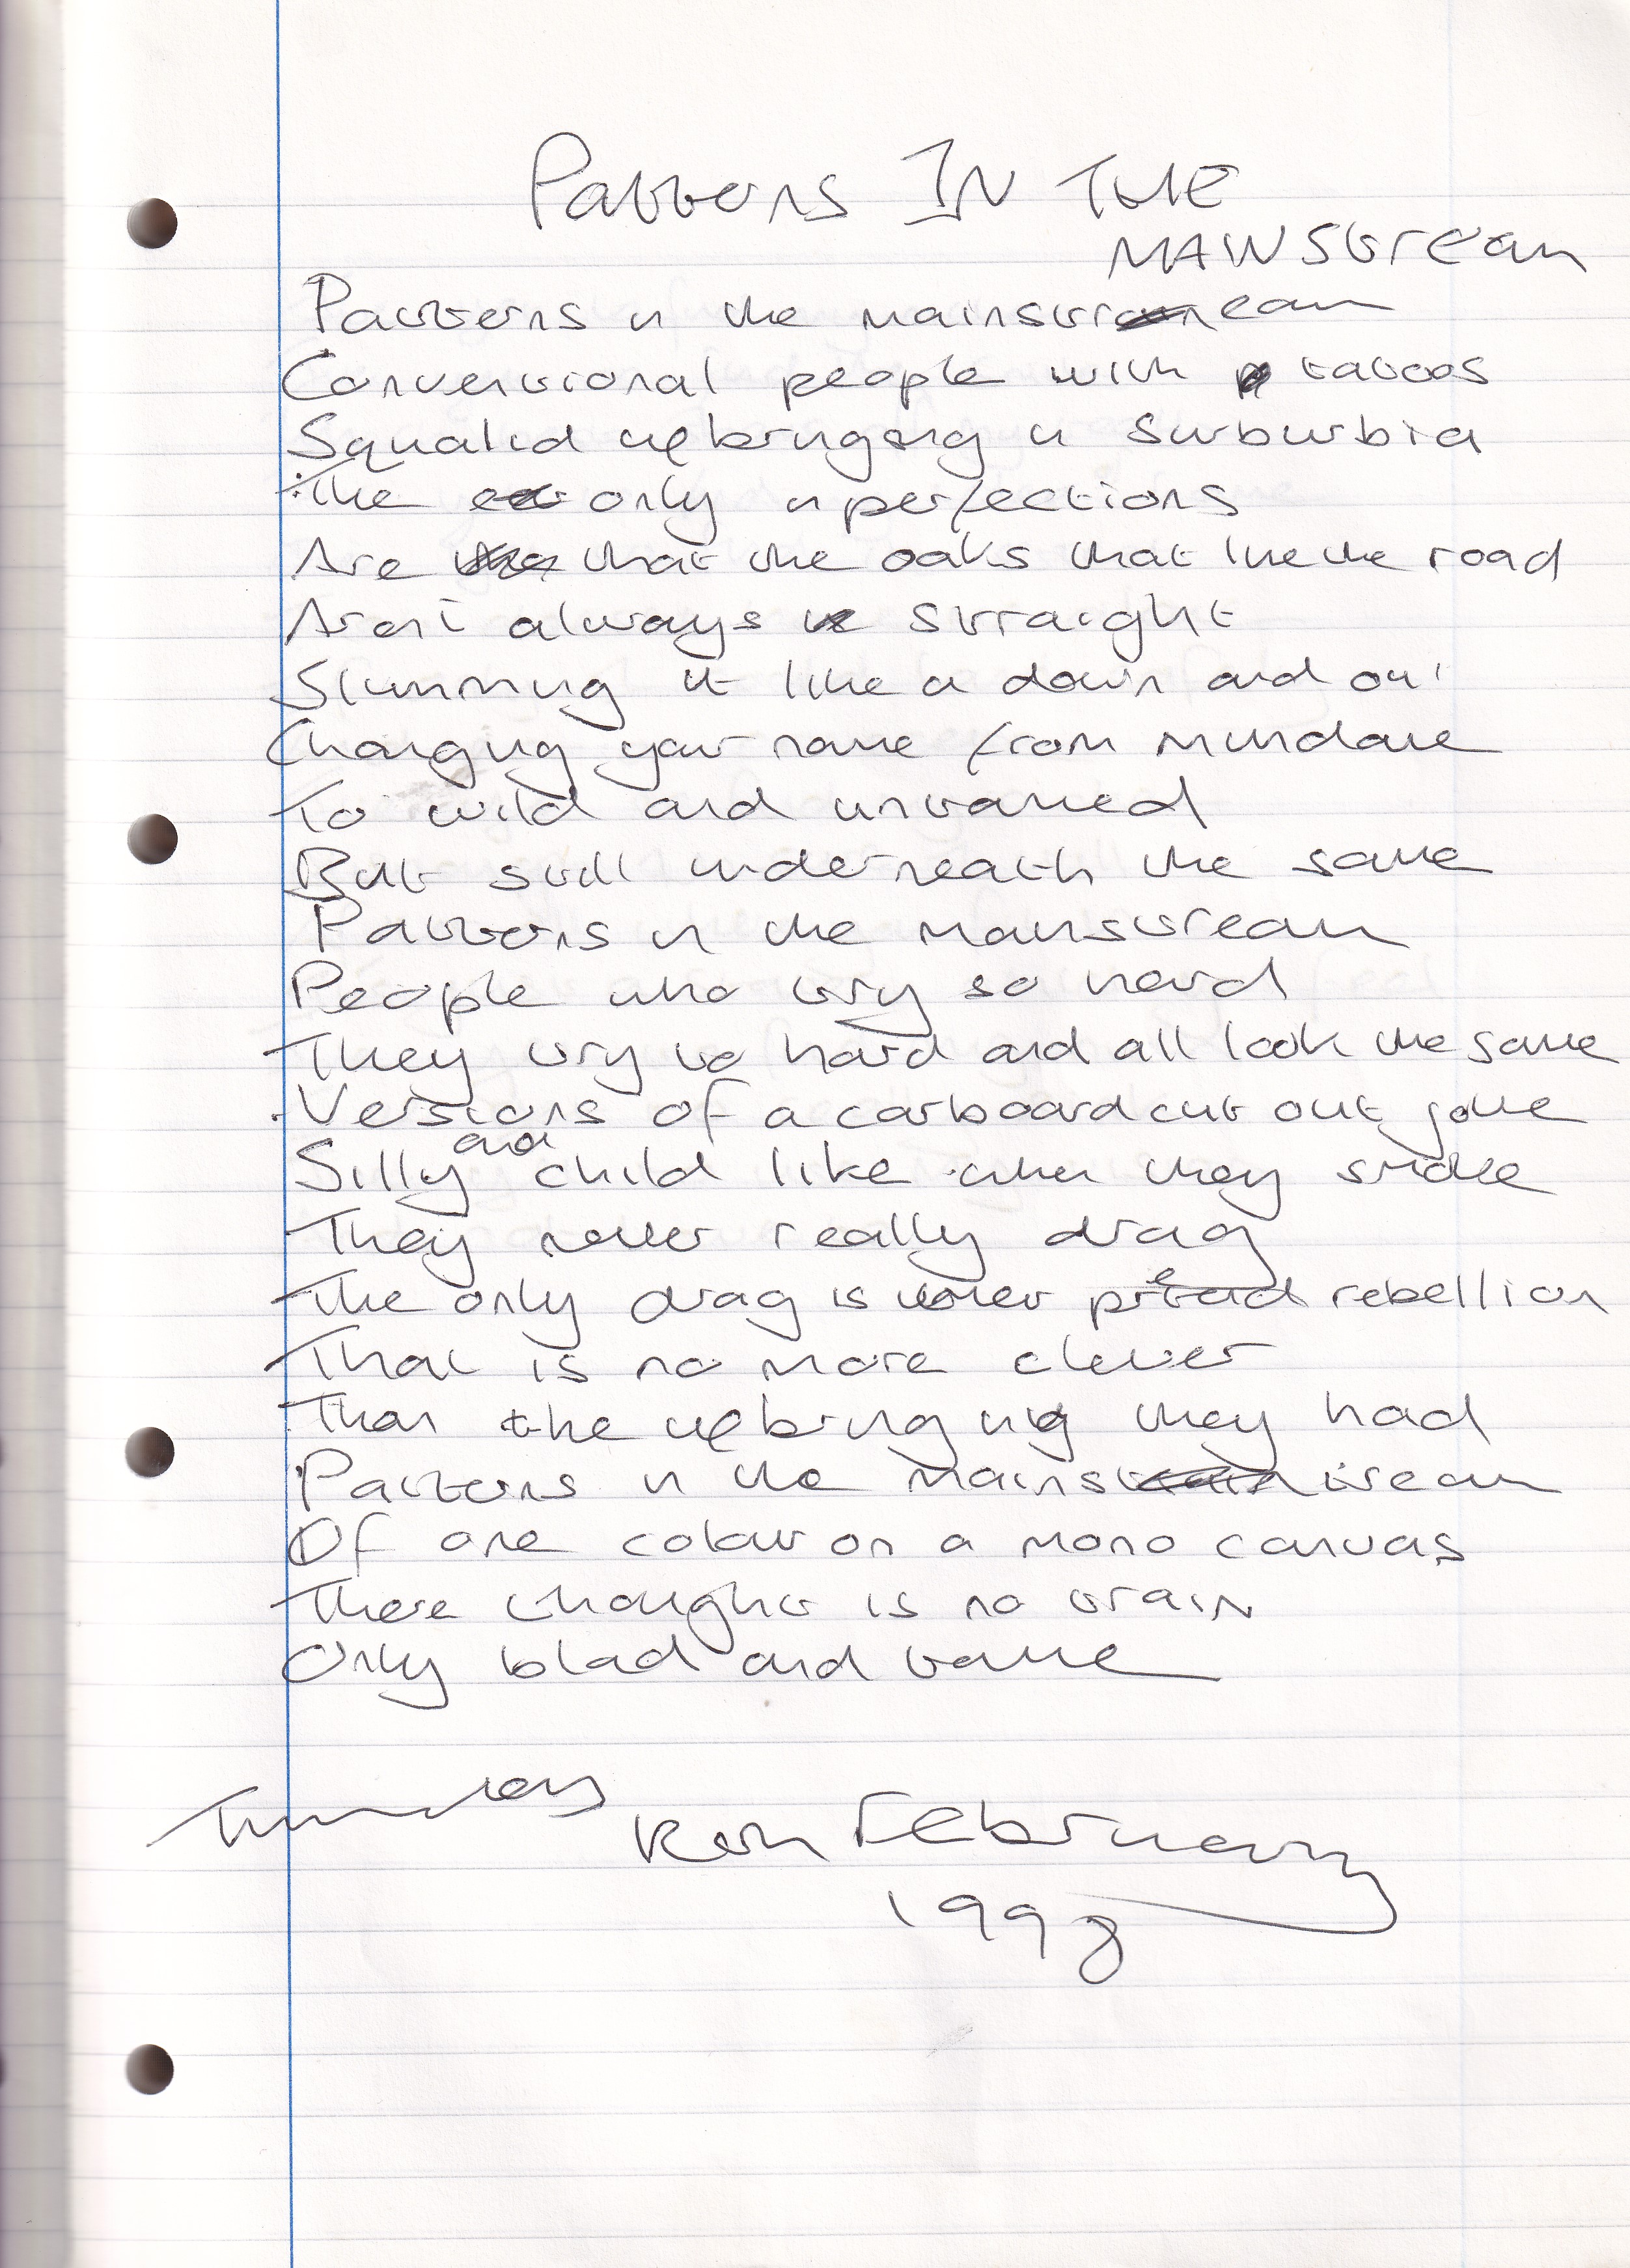 Patterns IN THE
MAINStream
Patterns in the mainstream
Conventional people with tatoos
Squalid upbringing in Surburbia
The only inperfections
Are that the oaks that line the road
Aren't always straight
Slumming it like a down and out
Changing your name from mundane
To wild and untamed
But still underneath the same
Patterns in the mainstream
People who try so hard
They try to hard and all look the same
Versions of a carboard cut out joke
Silly and child like when they smoke
They never really drag
The only drag is their rebellion
That is no more clever
Than the upbringing they had
Patterns in the mainstream
Of one colour on a mono canvas
There thought is no train
Only bland and tame
February
1998